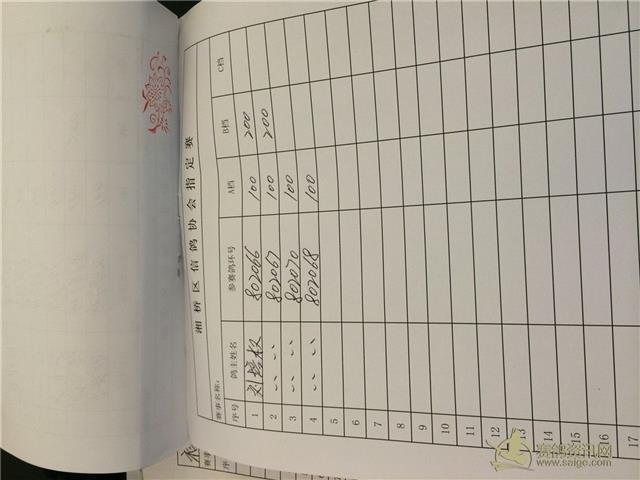 湘桥区信鸽协会指定赛
赛事名称:
序号 鸽主姓名 参赛鸽环号 A档 B档 C档
1 刘 802066 100 200
2 〃 〃 802067 100 200
3 〃 〃 802070 100
4 〃 〃 802068 100
5
6
7
8
9
10
11
12
13
14
15
16
17
赛鸽资讯网
www.saige.com